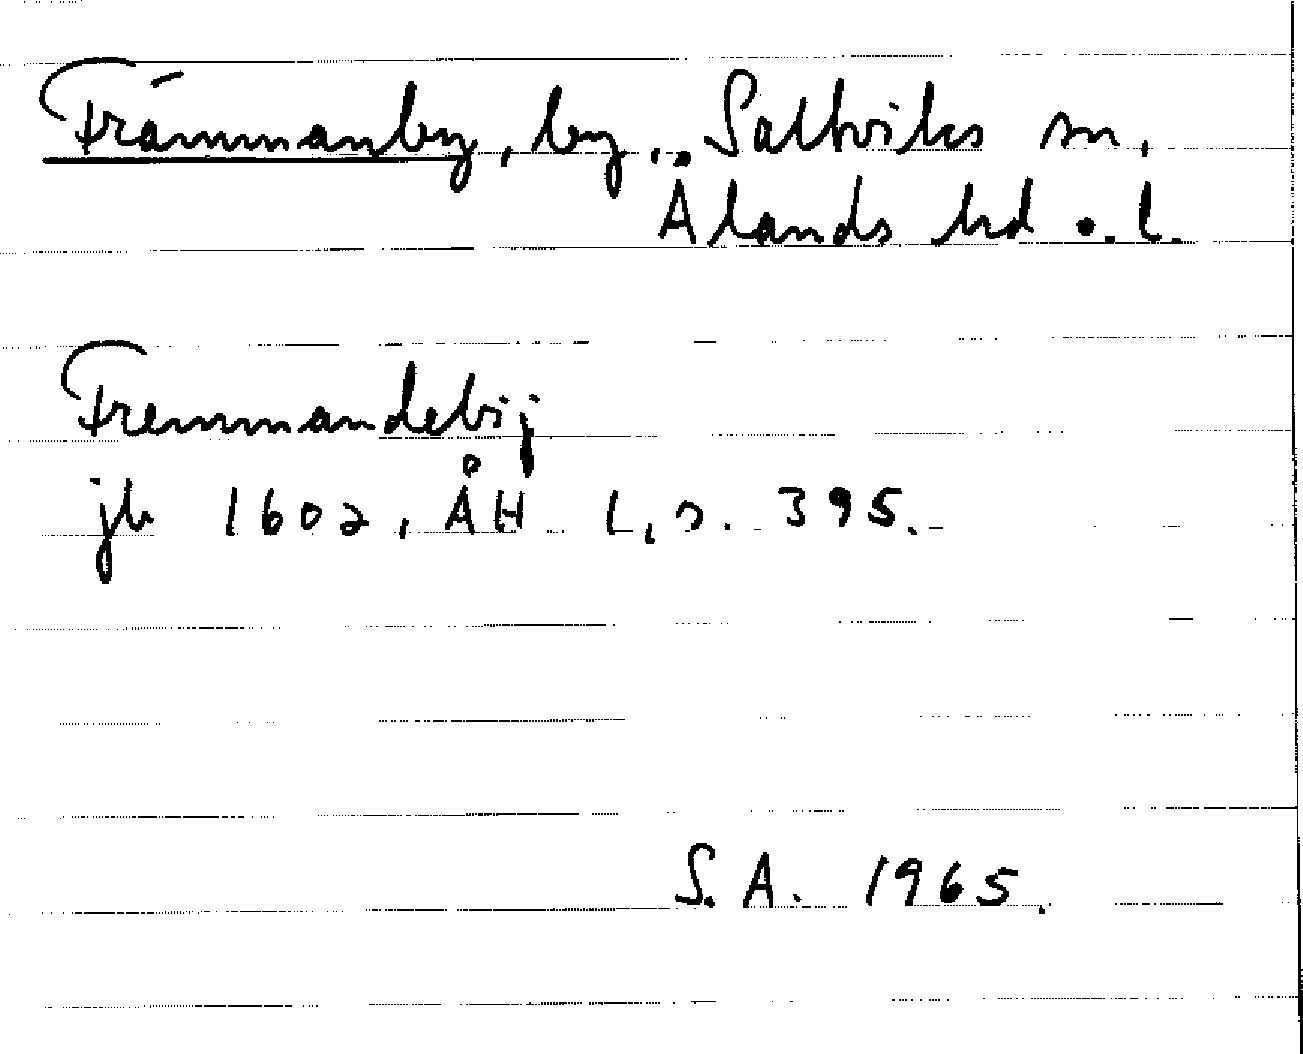 Främmanby, by, Saltviks sn,
Ålands hd o. l.
Fremmandebij
jb 1602, ÅH L, s. 395.
S. A. 1965.